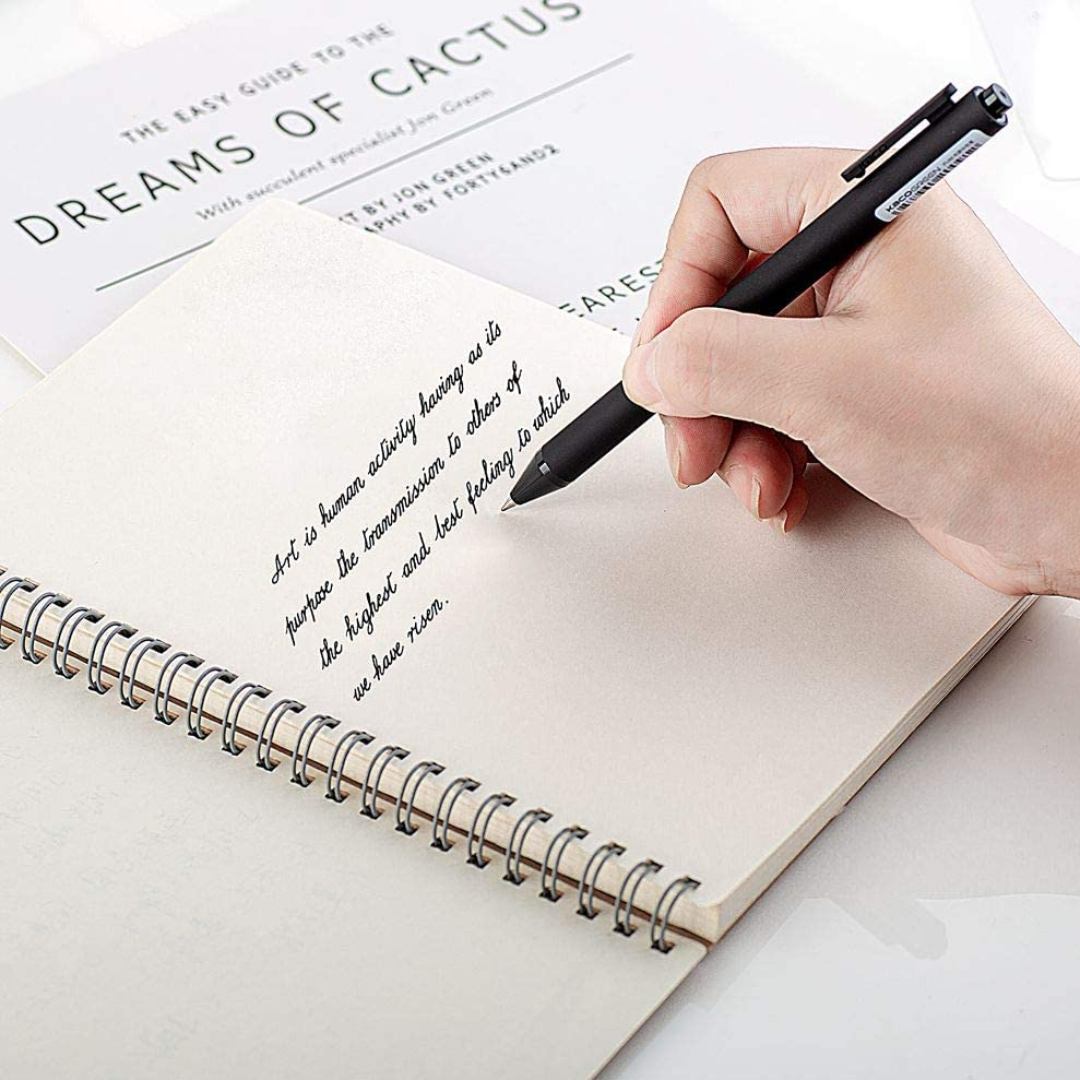 THE EASY GUIDE TO THE
DREAMS OF CACTUS
With succulent specialist Jon Green
T BY JON GREEN
APHY BY FORTY6AND2
EAREST
KACOGREEN
Art is human activity having as its
purpose the transmission to others of
the highest and best feeling to which
we have risen.